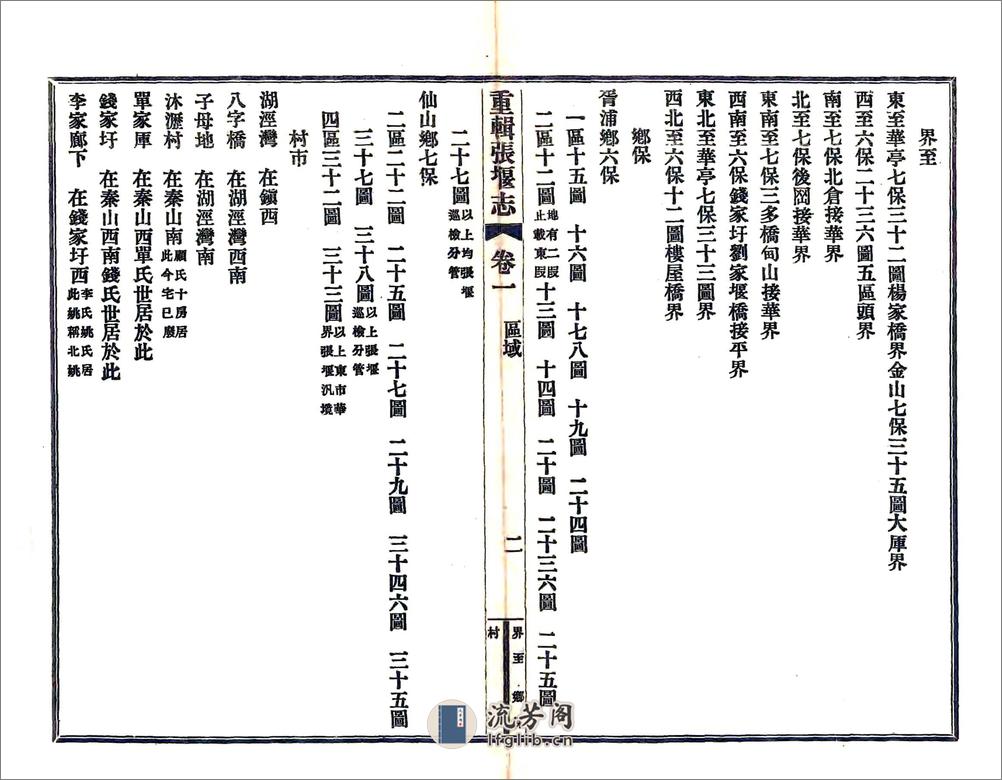 界至
東至華亭七保三十二圖楊家橋界金山七保三十五圖大厙界
西至六保二十三六圖五區頭界
南至七保北倉接華界
北至七保後岡接華界
東南至七保三多橋甸山接華界
西南至六保錢家圩劉家堰橋接平界
東北至華亭七保三十三圖界
西北至六保十二圖樓屋橋界
鄉保
胥浦鄉六保
一區十五圖 十六圖 十七八圖 十九圖 二十四圖
二區十二圖地有二叚止載東叚十三圖 十四圖 二十圖 二十三六圖 二十五圖
重輯張堰志 卷一 區域 二 界至 鄉 村
二十七圖以上均張堰巡檢分管
仙山鄉七保
二區二十二圖 二十五圖 二十七圖 二十九圖 三十四六圖 三十五圖
三十七圖 三十八圖以上張堰巡檢分管
四區三十二圖 三十三圖以上東市華界張堰汛境
村市
湖涇灣 在鎮西
八字橋 在湖涇灣西南
子母地 在湖涇灣南
沐瀝村 在秦山南顧氏十房居此今宅已廢
單家厙 在秦山西單氏世居於此
錢家圩 在秦山西南錢氏世居於此
李家廊下 在錢家圩西李氏姚氏居此姚稱北姚
流芳阁
lfglib.cn